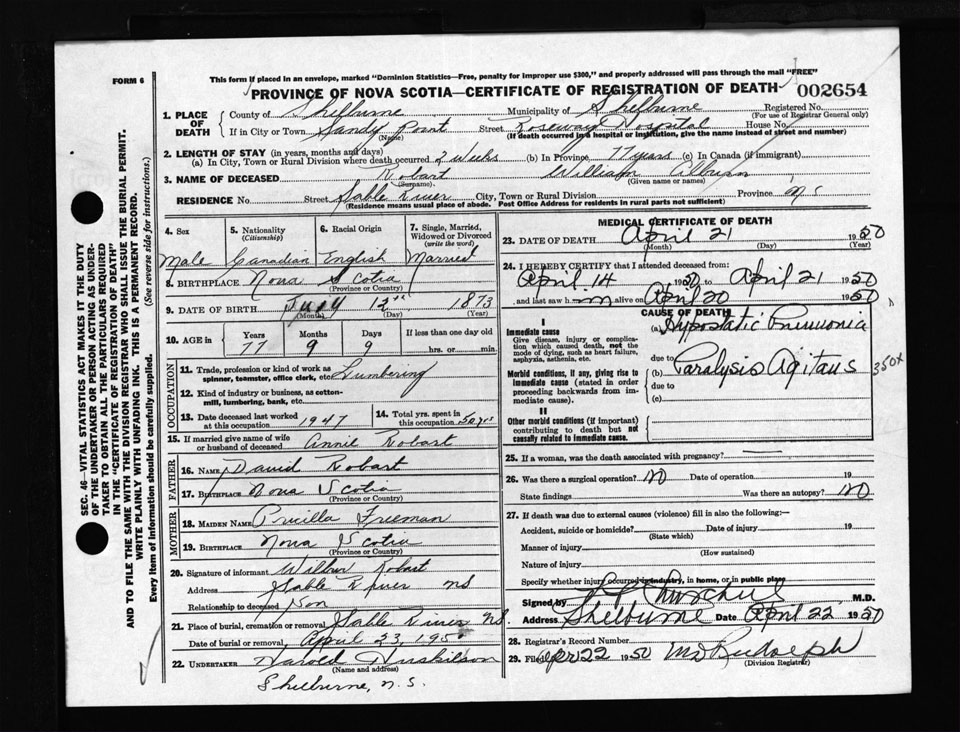 FORM 6
This form if placed in an envelope, marked "Dominion Statistics—Free, penalty for improper use $300," and properly addressed will pass through the mail "FREE"
PROVINCE OF NOVA SCOTIA—CERTIFICATE OF REGISTRATION OF DEATH
002654
SEC. 46—VITAL STATISTICS ACT MAKES IT THE DUTY
OF THE UNDERTAKER OR PERSON ACTING AS UNDER-
TAKER TO OBTAIN ALL THE PARTICULARS REQUIRED
IN THE "CERTIFICATE OF REGISTRATION OF DEATH"
AND TO FILE THE SAME WITH THE DIVISION REGISTRAR WHO SHALL ISSUE THE BURIAL PERMIT.
WRITE PLAINLY WITH UNFADING INK. THIS IS A PERMANENT RECORD.
Every item of information should be carefully supplied. (See reverse side for instructions.)
1. PLACE OF DEATH
County of Shelburne Municipality of Shelburne Registered No.
(For use of Registrar General only)
If in City or Town Sandy Point Street Roseway Hospital House No.
(Name) (If death occurred in a hospital or institution, give the name instead of street and number)
2. LENGTH OF STAY (in years, months and days)
(a) In City, Town or Rural Division where death occurred 2 weeks (b) In Province 77 years (c) In Canada (if immigrant)
3. NAME OF DECEASED Robart William
(Surname) (Given name or names)
RESIDENCE No. Street Sable River City, Town or Rural Division Province N S
(Residence means usual place of abode. Post Office Address for residents in rural parts not sufficient)
4. Sex
Male
5. Nationality
(Citizenship)
Canadian
6. Racial Origin
English
7. Single, Married,
Widowed or Divorced
(write the word)
Married
8. BIRTHPLACE Nova Scotia
(Province or Country)
9. DATE OF BIRTH July 12 1873
(Month) (Day) (Year)
10. AGE in
Years
77
Months
9
Days
9
If less than one day old
hrs. or min.
OCCUPATION
11. Trade, profession or kind of work as
spinner, teamster, office clerk, etc. Lumbering
12. Kind of industry or business, as cotton-
mill, lumbering, bank, etc.
13. Date deceased last worked
at this occupation 1947
14. Total yrs. spent in
this occupation 50 yrs
15. If married give name of wife
or husband of deceased Annie Robart
FATHER
16. NAME David Robart
17. BIRTHPLACE Nova Scotia
(Province or Country)
MOTHER
18. MAIDEN NAME Prucilla Freeman
19. BIRTHPLACE Nova Scotia
(Province or Country)
20. Signature of informant Wilbur Robart
Address Sable River NS
Relationship to deceased Son
21. Place of burial, cremation or removal Sable River NS
Date of burial or removal April 23, 195
22. UNDERTAKER Harold Huskilson
(Name and address)
Shelburne, N.S.
MEDICAL CERTIFICATE OF DEATH
23. DATE OF DEATH April 21 1950
(Month) (Day) (Year)
24. I HEREBY CERTIFY that I attended deceased from:
April 14 1950 to April 21 1950
and last saw him alive on April 20 1950
CAUSE OF DEATH
I
Immediate cause
Give disease, injury or complica-
tion which caused death, not the
mode of dying, such as heart failure,
asphyxia, asthenia, etc.
(a) Hypostatic Pneumonia
due to
Morbid conditions, if any, giving rise to
immediate cause (stated in order
proceeding backwards from im-
mediate cause).
(b) Paralysis Agitans 350X
due to
(c)
II
Other morbid conditions (if important)
contributing to death but not
causally related to immediate cause.
25. If a woman, was the death associated with pregnancy?
26. Was there a surgical operation? No Date of operation 19
State findings Was there an autopsy? No
27. If death was due to external causes (violence) fill in also the following:—
Accident, suicide or homicide? Date of injury 19
(State which)
Manner of injury
(How sustained)
Nature of injury
Specify whether injury occurred in industry, in home, or in public place
Signed by M.D.
Address Shelburne Date April 22 1950
28. Registrar's Record Number
29. Filed Apr 22 1950 M D Rudolph
(Division Registrar)